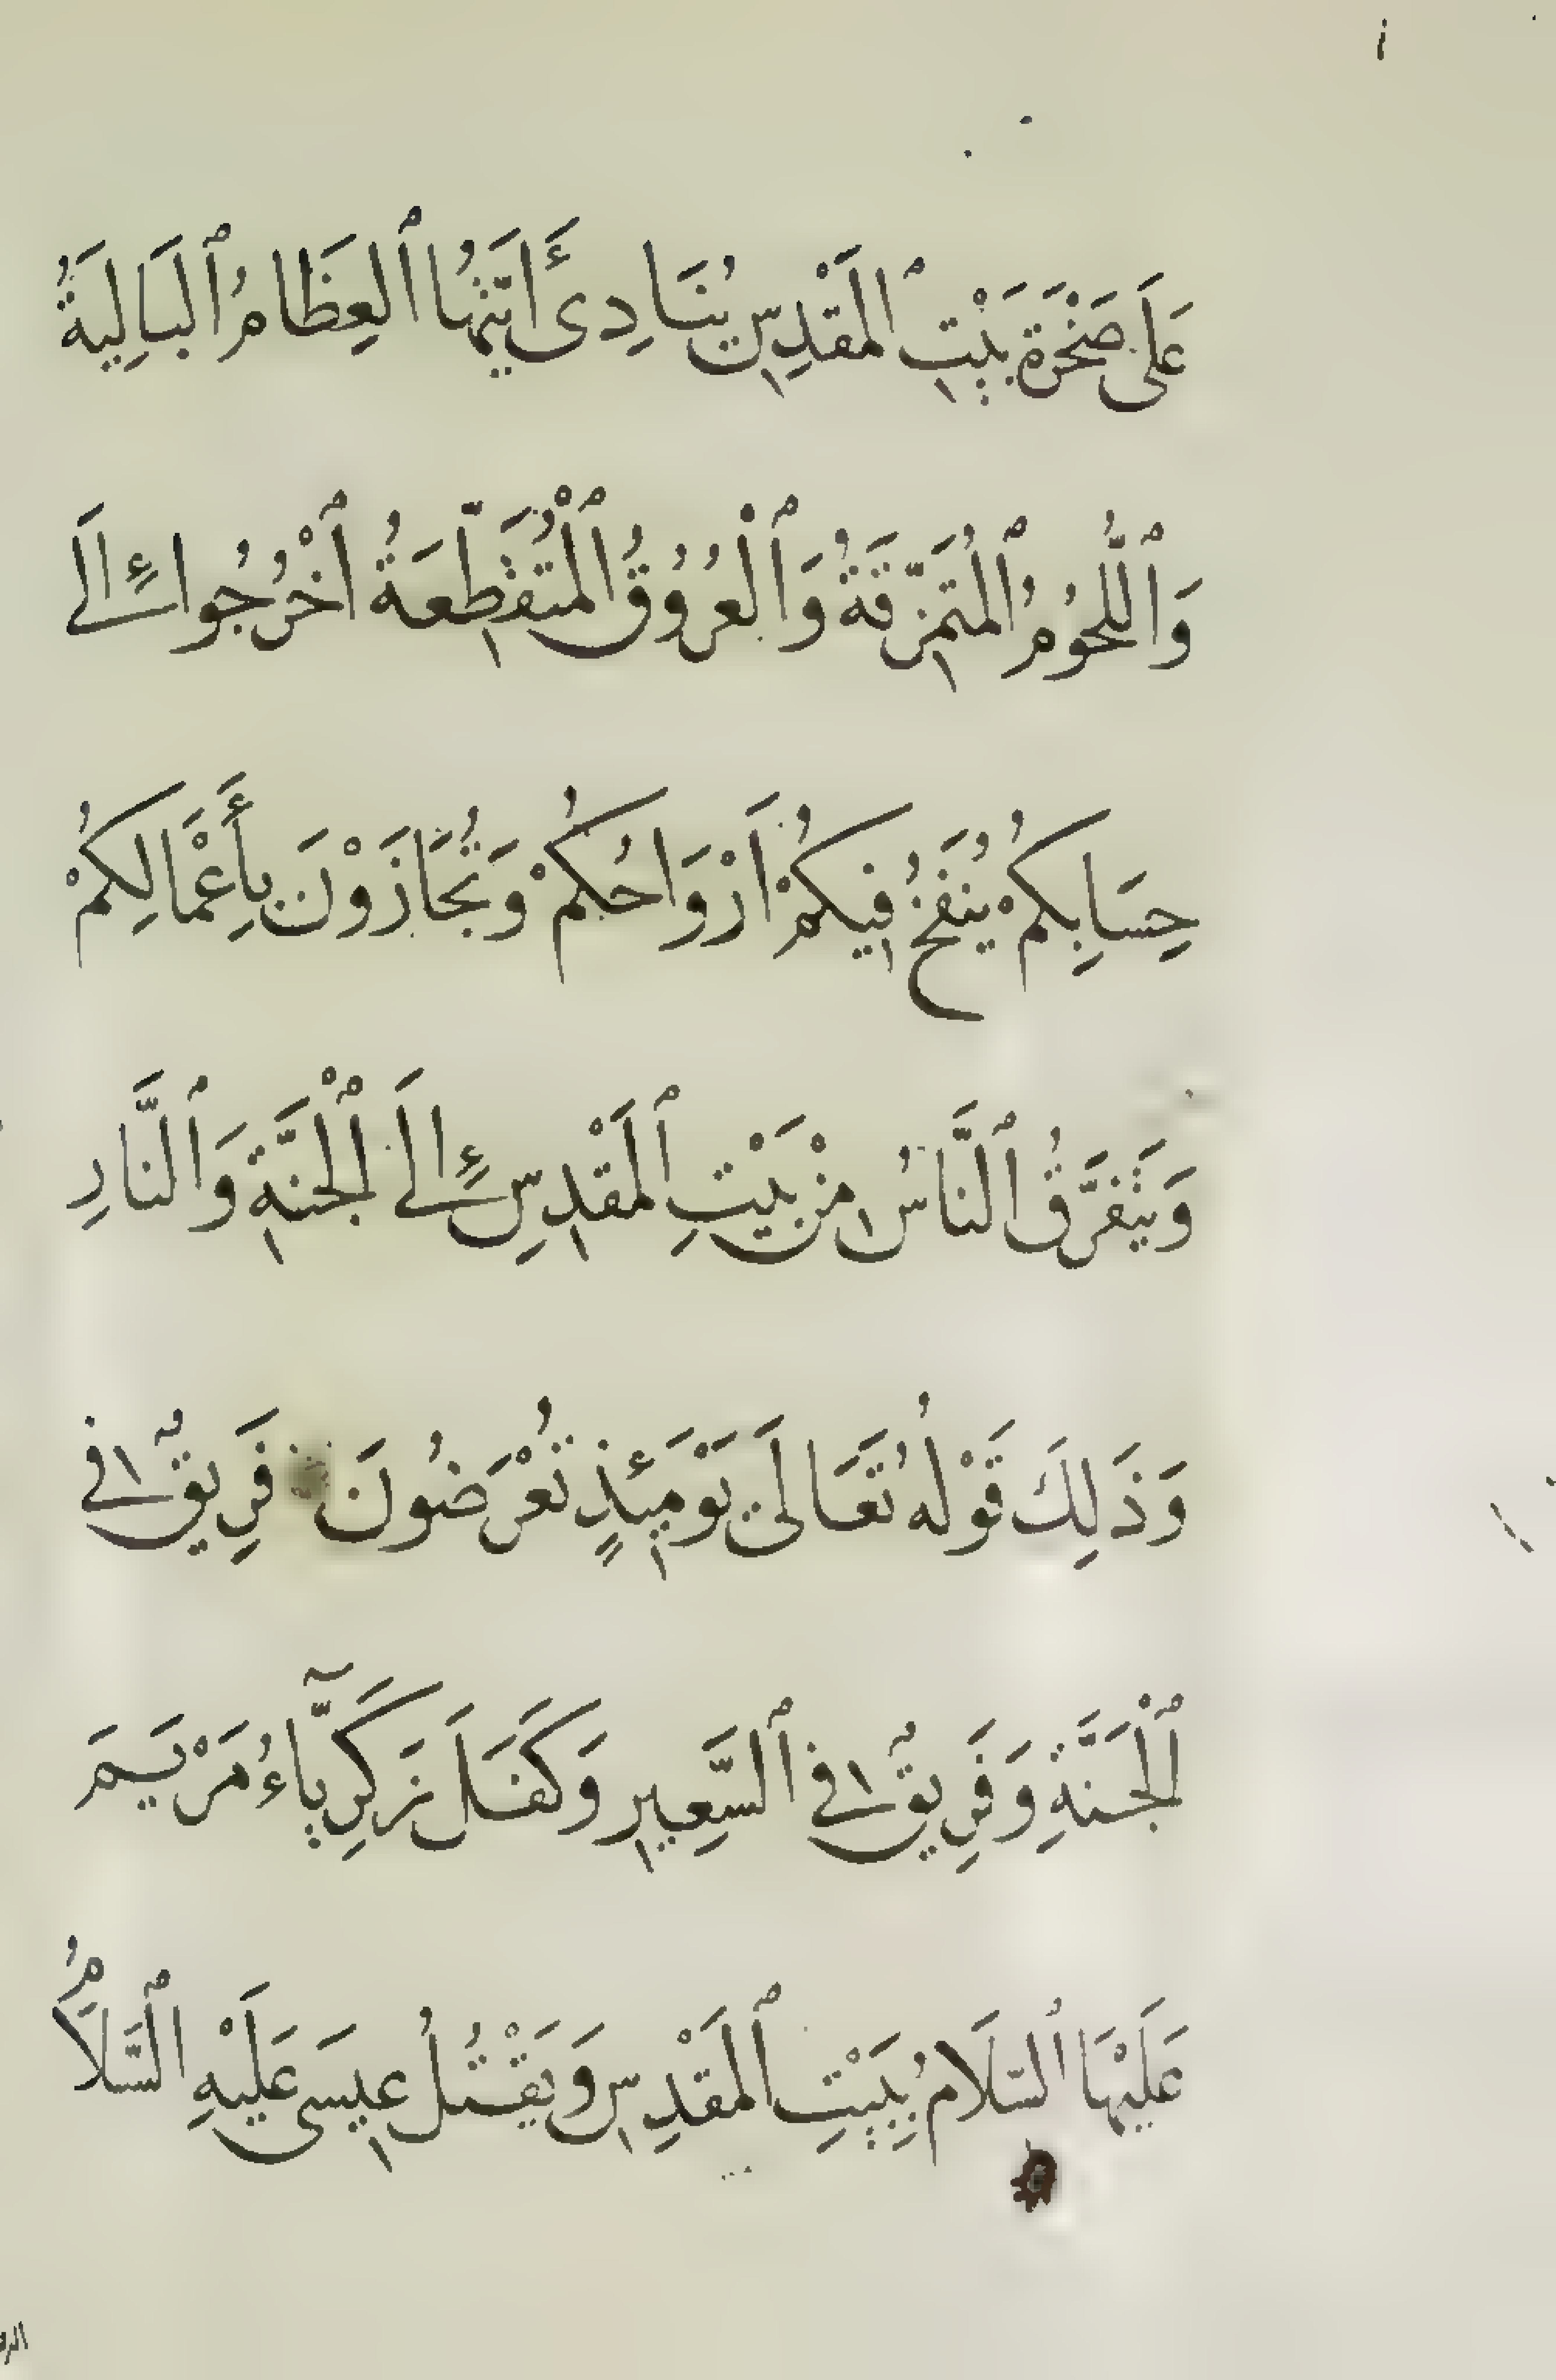 عَلَى صَخْرَةِ بَيْتِ ٱلْمَقْدِسِ يُنَادِى أَيَّتُهَا ٱلعِظَامُ ٱلبَالِيَةُ
وَٱللُّحُومُ ٱلمُتَمَزِّقَةُ وَٱلْعُرُوقُ ٱلْمُتَقَطِّعَةُ ٱخْرُجُوا إِلَى
حِسَابِكُمْ يُنْفَخُ فِيكُمْ اَرْوَاحُكُمْ وَتُجَازَوْنَ بِأَعْمَالِكُمْ
وَيَتَفَرَّقُ ٱلنَّاسُ مِنْ بَيْتِ ٱلمَقْدِسِ إِلَى ٱلْجَنَّةِ وَٱلنَّارِ
وَذَلِكَ قَوْلُهُ تَعَالَى يَوْمَئِذٍ تُعْرَضُونَ فَرِيقٌ فِى
ٱلْجَنَّةِ وَفَرِيقٌ فِى ٱلسَّعِيرِ وَكَفَلَ زَكَرِيَّآءُ مَرْيَمَ
عَلَيْهَا ٱلسَّلَامُ بِبَيْتِ ٱلمَقْدِسِ وَيَقْتُلُ عِيسَى عَلَيْهِ ٱلسَّلَامُ